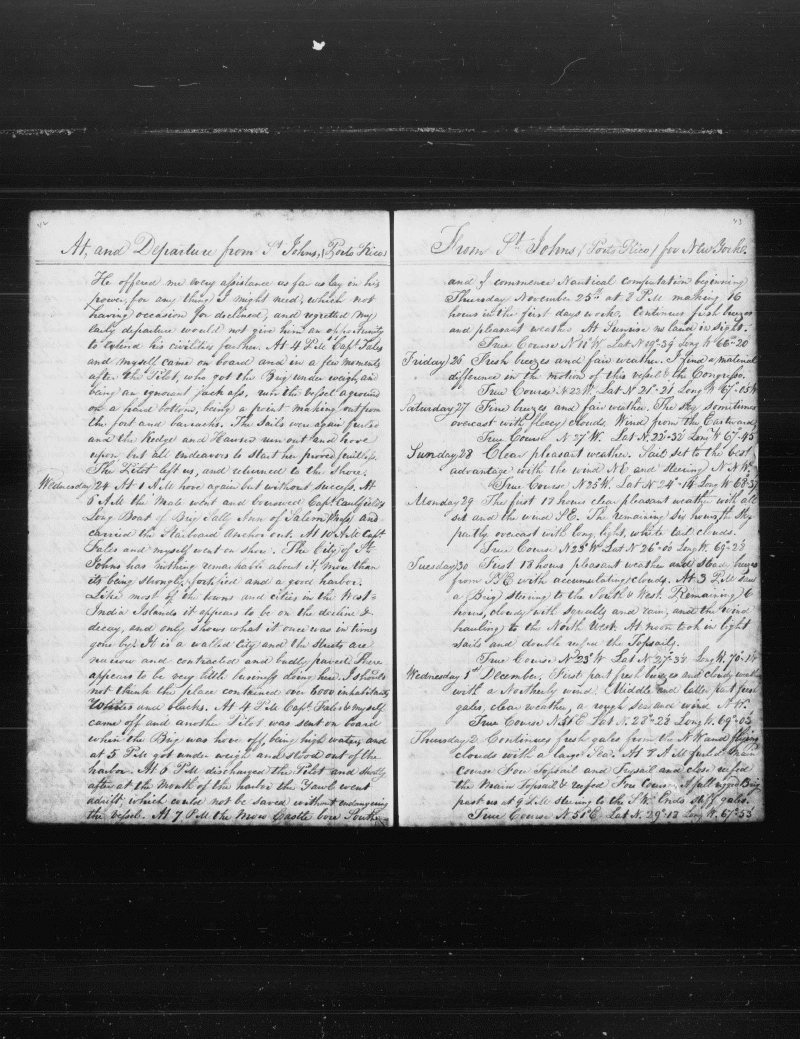 42
At, and Departure from St Johns, (Porto Rico)
He offered me every assistance as far as lay in his
power, for any thing I might need, which not
having occasion for declined, and regretted my
early departure would not give him an oppertunity
to extend his civilities farther. At 4 P.M Capt Fales
and myself came on board and in a few moments
after the Pilot, who got the Brig under weigh, an
being an ignorant jack ass, run the vessel aground
on a hard bottom, being a point making out from
the fort and barracks. The Sails were again furled
and the Kedge and Hawser run out and hove
upon, but all endeavors to start her proved fruitless.
The Pilot left us, and returned to the Shore.
Wednesday 24 At 1 A.M hove again but without success. At
6 A.M the Mate went and borrowed Capt Caulfields
Long Boat of Brig Sally Ann of Salem (Mass) and
carried the Starboard Anchor out. At 10 A.M Capt
Fales and myself went on shore. The City of St
Johns has nothing remarkable about it, more than
its being strongly fortified and a good harbor.
Like most of the towns and cities in the West=
India Islands it appears to be on the decline &
decay, and only shows what it once was in times
gone by. It is a walled City and the Streets are
narrow and contracted and badly paved. There
appears to be very little business doing here. I should
not think the place contained over 6000 inhabitants
whites and blacks. At 4 P.M Capt Fales & myself
came off and another Pilot was sent on board
when the Brig was hove off, being high water, and
at 5 P.M got under weigh and stood out of the
harbor. At 6 P.M discharged the Pilot and shortly
after at the Mouth of the harbor the Yawl went
adrift, which could not be saved without endangering
the vessel. At 7, P.M the Moro Castle bore South
43
From St Johns (Porto Rico) for New York.
and I commence Nautical computation beginning
Thursday November 25th at 8 P.M making 16
hours in the first days work. Continues fresh breezes
and pleasant weather. At Sunrise no land in sight.
True Course N 11° W. Lat N 19°-34 Long W 66°-20
Friday 26 Fresh breezes and fair weather. I find a material
difference in the motion of this vessel & the Congress.
True Course N 22 W. Lat N 21°-21 Long W 67°-05
Saturday 27 Fine breezes and fair weather. The sky sometimes
overcast with fleecy clouds. Wind from the Eastward,
True Course N 27 W. Lat N. 22°-32 Long W 67-45
Sunday 28 Clear pleasant weather. Sail set to the best
advantage with the wind N E and steering N N W
True Course N 25 W. Lat N 24°-14 Long W 68-37
Monday 29 The first 18 hours clear pleasant weather with all
set and the wind S E. The remaining six hours the sky
partly overcast with long, light, white tail clouds.
True Course N 23 W Lat N 26°-00 Long W. 69°-23
Tuesday 30 First 18 hours pleasant weather and steady breezes
from S S E with accumulating clouds. At 3 P.M saw
a Brig steering to the South & West. Remaining 6
hours, cloudy with squalls and rain, and the wind
hauling to the North West. At noon took in light
sails and double reefed the Topsails.
True Course N 23° W Lat N 27°-34 Long W. 70°-14
Wednesday 1st December. First part fresh breezes and cloudy weather
with a Northerly wind. Middle and latter part fresh
gales, clear weather, a rough sea and wind N W.
True Course N 51 E Lat N. 28°-23 Long W. 69-03
Thursday 2 Continues fresh gales from the N W and flying
clouds with a large Sea. At 8 A.M furled Main
course Fore Topsail and Trysail and close reefed
the Main Topsail & reefed Fore Course. A full rigged Brig
past us at 9 A.M steering to the S W. Ends stiff gales.
True Course N 51° E. Lat N. 29°-13 Long W. 67°-55